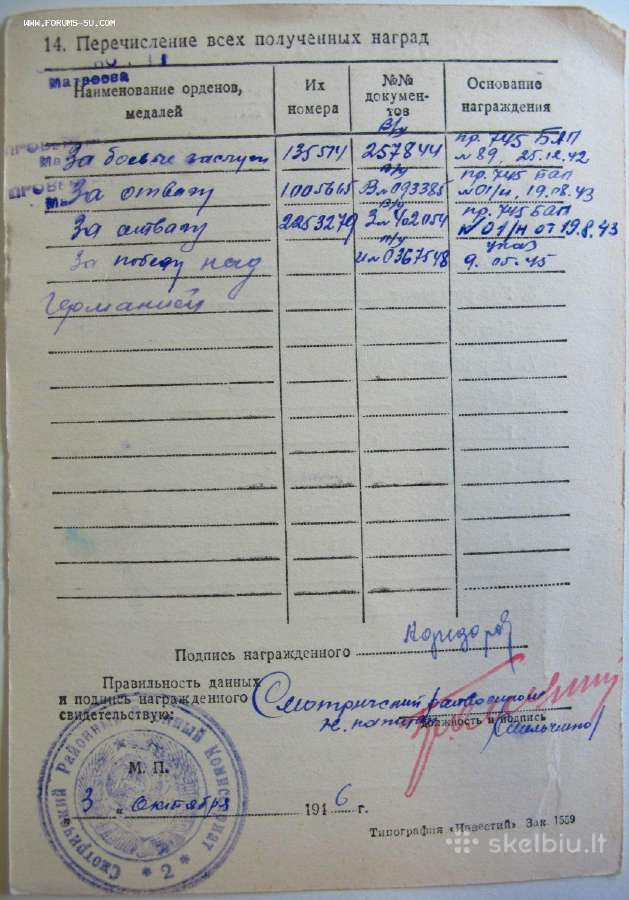 www.forums-su.com
14. Перечисление всех полученных наград
Матвеева
Наименование орденов, медалей
Их номера
№№ документов
Основание награждения
За боевые заслуги 135514 в/у 257844 пр. 745 БАП № 89. 25.12.42
За отвагу 1005615 в/у В№093385 пр. 745 БАП №01/н. 19.08.43
За отвагу 2253279 в/у З№402054 пр. 745 БАП №01/н от 19.8.43
За победу над п/у И№0367548 указ 9.05.45
Германией
Подпись награжденного
Правильность данных
и подпись награжденного Смотричский райвоенком
свидетельствую:
должность и подпись
М. П.
3 " октября 1946 г.
Смотричский Районный Военный Комиссариат
* 2 *
Типография «Известий» Зак. 1559
skelbiu.lt